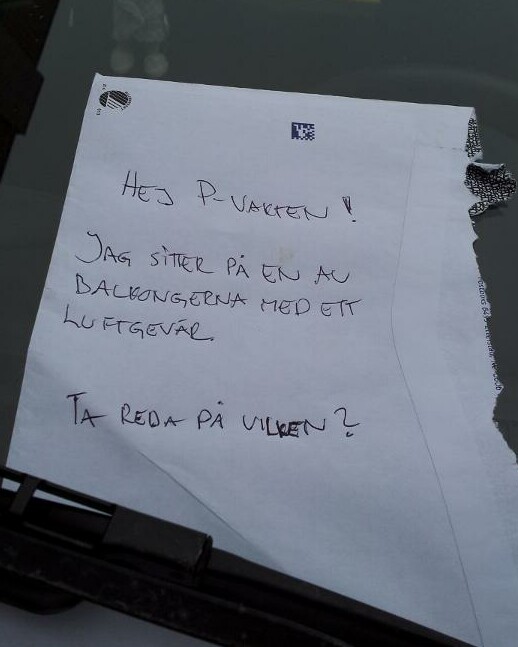 HEJ P-VAKTEN!
JAG SITTER PÅ EN AV
BALKONGERNA MED ETT
LUFTGEVÄR.
TA REDA PÅ VILKEN?